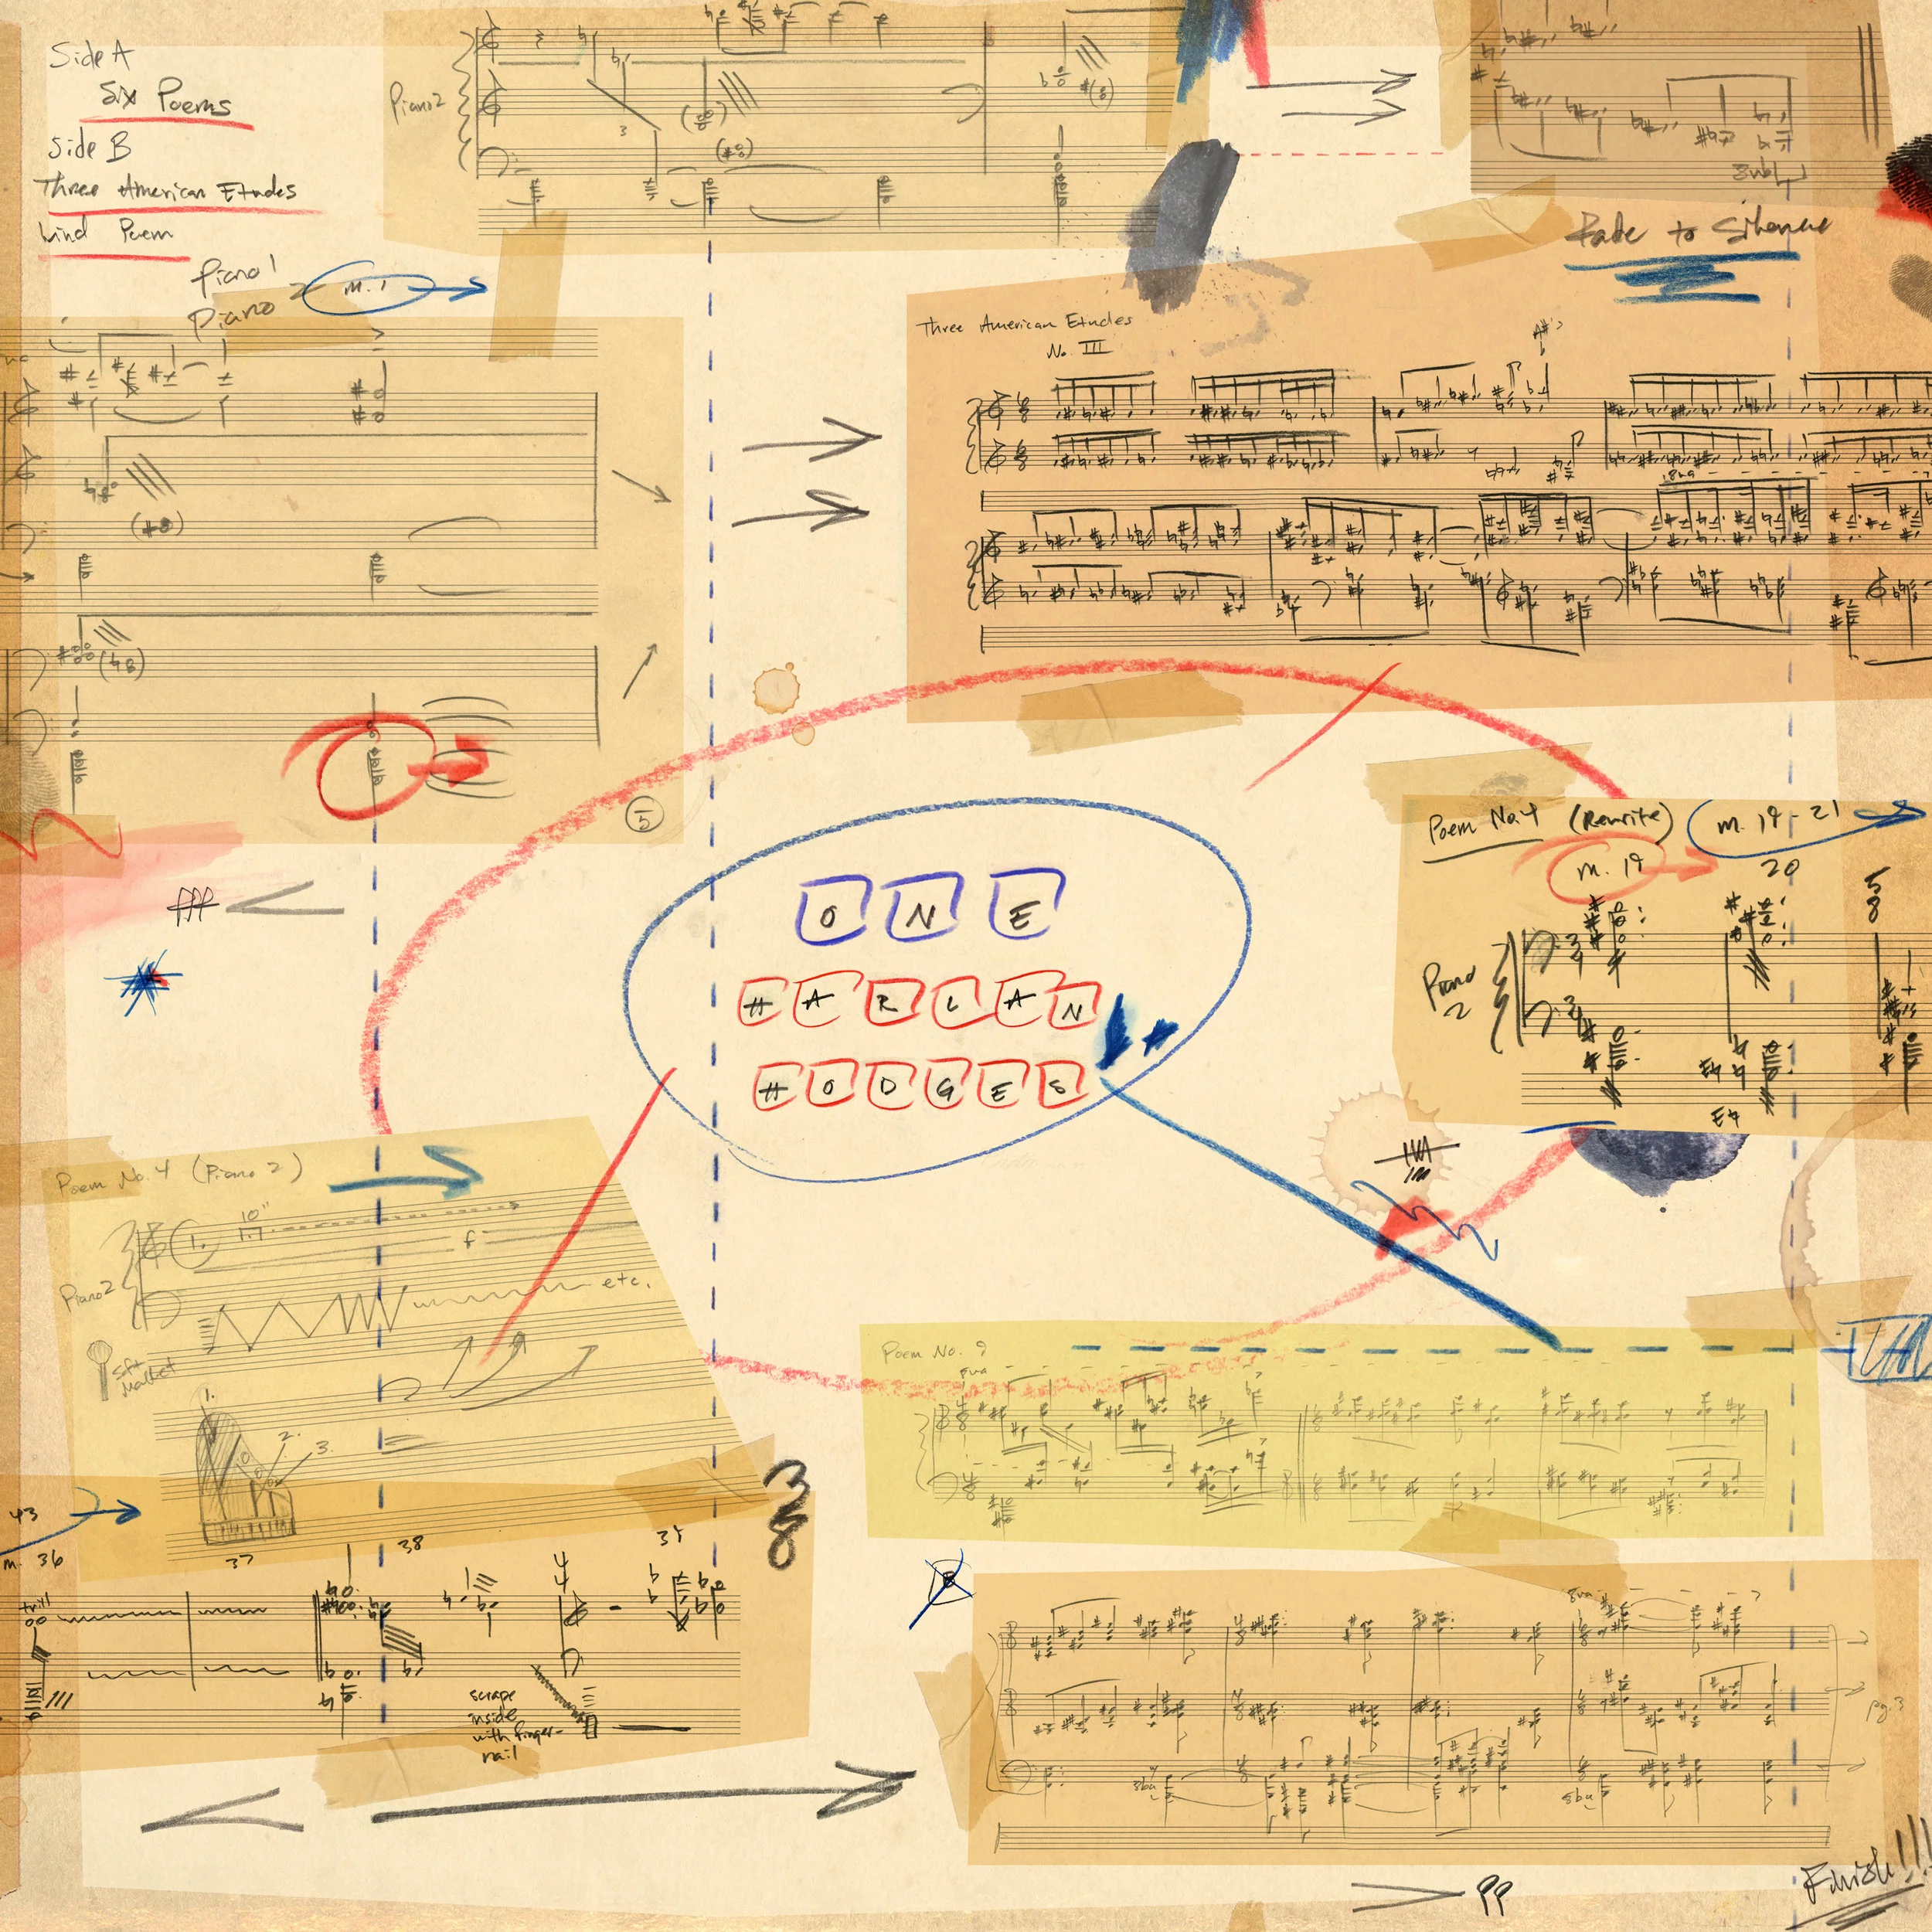 Side A
Six Poems
Side B
Three American Etudes
Wind Poem
Piano 2
3
Fade to Silence
Piano 1
Piano 2
m. 1
Three American Etudes
No. III
8va
5
Poem No. 4 (Rewrite)
m. 19 - 21
m. 19
20
5
8
Piano
2
E♮
E♮
ONE
HARLAN
HODGES
Poem No. 4 (Piano 2)
1.
10"
f
Piano 2
etc.
soft
mallet
1.
2.
3.
Poem No. 9
8va
3
8
43
m. 36
37
38
trill
scrape
inside
with finger-
nail
8va
8ba
8ba
pg. 3
pp
Finish!!!